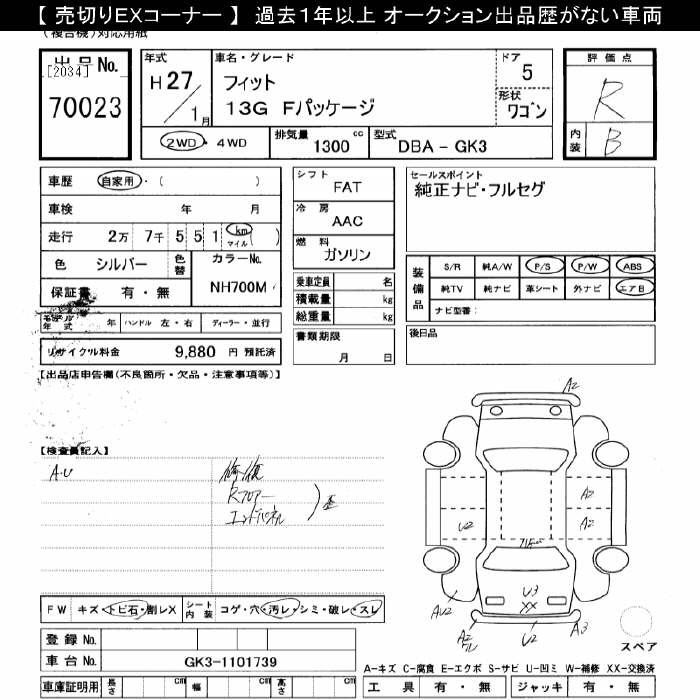 【 売切りEXコーナー 】 過去１年以上 オークション出品歴がない車両
(複合機)対応用紙
出品No.
[2034]
70023
年式
H27/1月
車名・グレード
フィット
13G Fパッケージ
ドア
5
形状
ワゴン
評価点
R
内装
B
2WD・4WD
排気量
1300 cc
型式
DBA - GK3
車歴 自家用・( )
車検 年 月
走行 2万 7千 5 5 1 km マイル ( )
色 シルバー
色替
カラーNo.
NH700M
保証書 有・無
モデル年式 年 ハンドル 左・右 ディーラー・並行
リサイクル料金 9,880 円 預託済
シフト
FAT
冷房
AAC
燃料
ガソリン
乗車定員 名
積載量 kg
総重量 kg
書類期限
月 日
セールスポイント
純正ナビ・フルセグ
装備品
S/R 純A/W P/S P/W ABS
純TV 純ナビ 革シート 外ナビ エアB
ナビ型番：
後日品
【出品店申告欄(不良箇所・欠品・注意事項等)】
【検査員記入】
A・U
修復
Rフロアー
エンドパネル
歴
A2
A2
A2
U2
U3
XX
AU2
A2
U2
A3
スペア
FW キズ・トビ石・割レX
シート内装 コゲ・穴・汚レ・シミ・破レ・スレ
登録 No.
車台 No. GK3-1101739
車庫証明用 長さ cm 幅 cm 高さ cm
A－キズ C－腐食 E－エクボ S－サビ U－凹ミ W－補修 XX－交換済
工具 有・無 ジャッキ 有・無